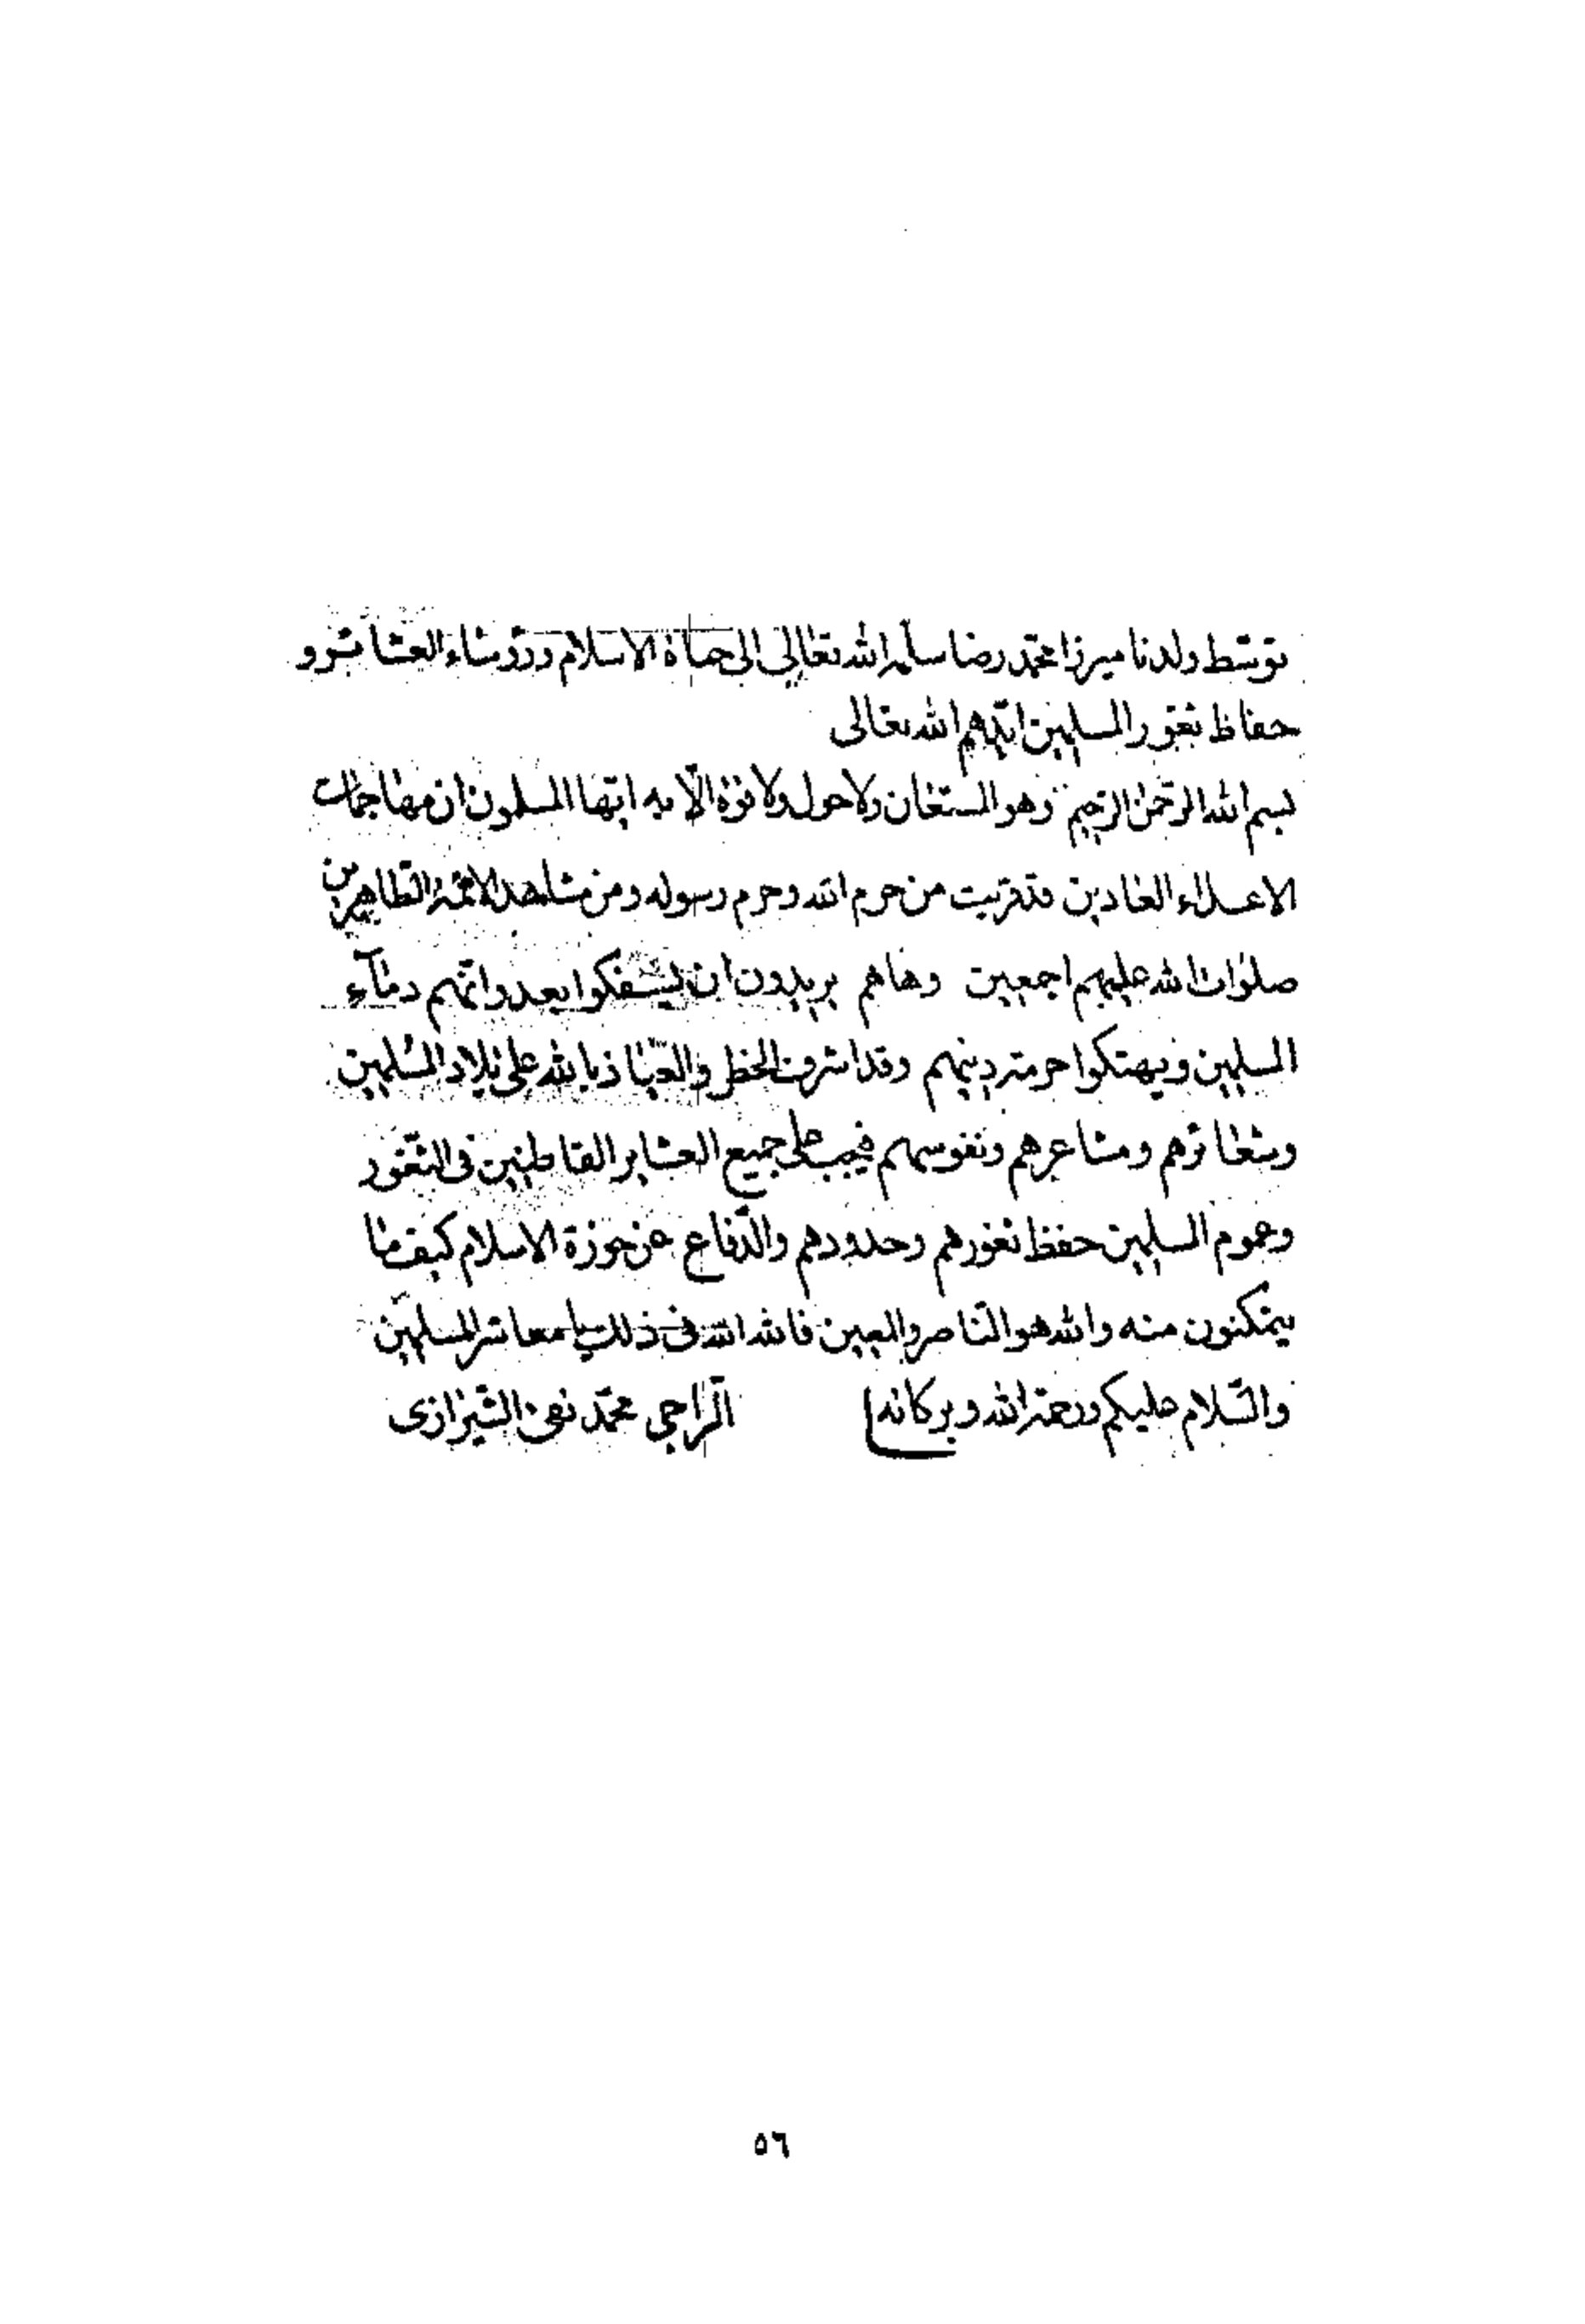 توسّط ولدنا ميرزا محمّد رضا سلّمه الله تعالى الى حماة الاسلام ورؤساء العشائر و
حفاظ ثغور المسلمين ايّدهم الله تعالى
بسم الله الرّحمن الرّحيم وهو المستعان ولا حول ولا قوّة الّا به ايّها المسلمون ان مهاجمات
الاعداء العادين قد قربت من حرم الله وحرم رسوله ومن مشاهد الائمّة الطّاهرين
صلوات الله عليهم اجمعين وهاهم يريدون ان يسفكوا بعدوانهم دمآء
المسلمين ويهتكوا حرمة دينهم وقد اشرف الخطر والعياذ بالله على بلاد المسلمين
وشعائرهم ومشاعرهم ونفوسهم فيجب على جميع العشاير القاطنين فى الثغور
وعموم المسلمين حفظ ثغورهم وحدودهم والدّفاع عن حوزة الاسلام كيف ما
يتمكنون منه والله هو النّاصر والمعين فالله الله فى ذلك يا معاشر المسلمين
والسّلام عليكم ورحمة الله وبركاته الرّاجى محمّد تقى الشّيرازى
٥٦